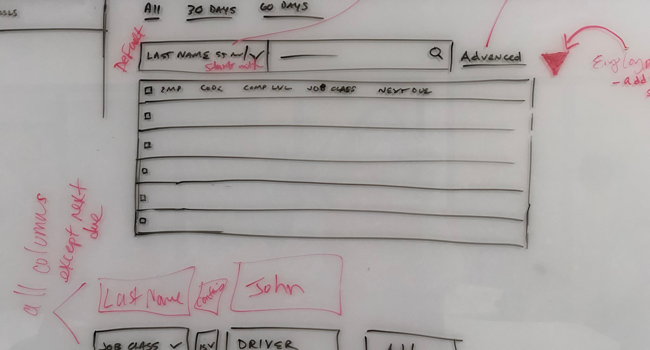 All 30 DAYS 60 DAYS
Default
LAST NAME
starts with
Advanced
- add
EMP CODE COMP LVL JOB CLASS NEXT DUE
all columns
except next
due
Last Name Contains John
JOB CLASS DRIVER